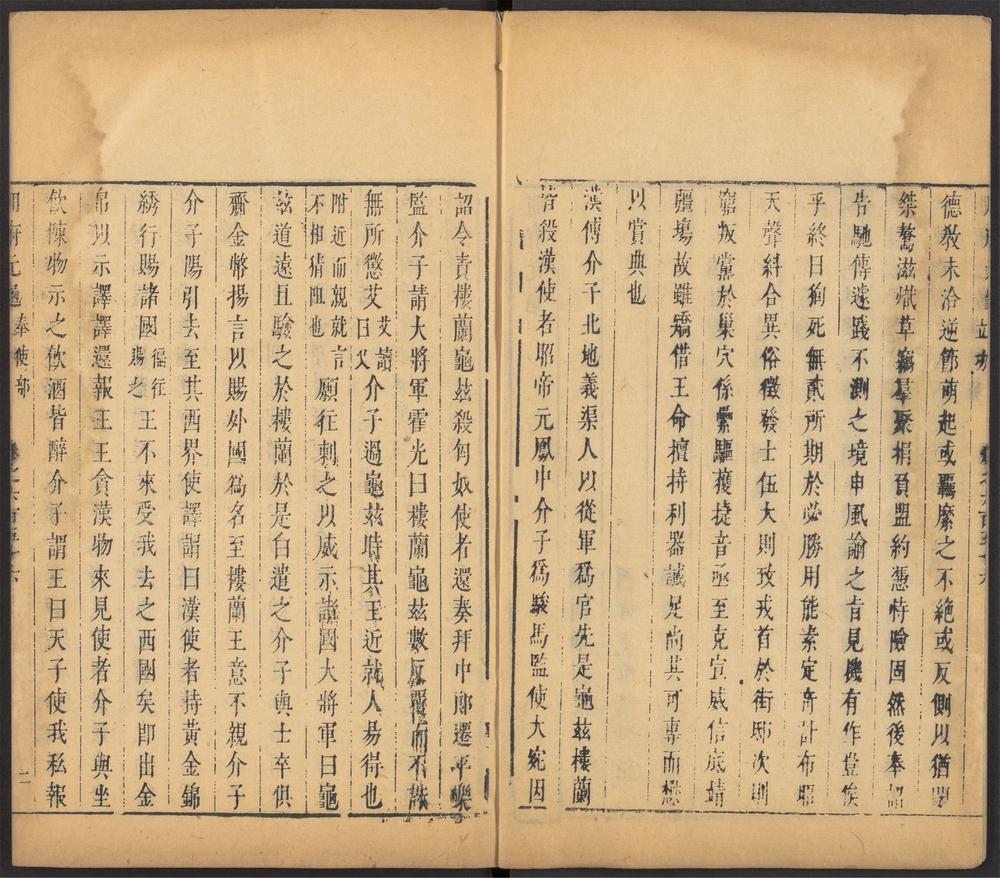 立功
德教未洽逆節萌起或羈縻之不絶或反側以猶
桀驁滋熾草竊羣聚捐負盟約憑恃險固然後奉詔
告馳傳遽踐不測之境申風諭之旨見機有作豈俟
乎終日徇死無貳所期於必勝用能素定奇計布昭
天聲糾合異俗徵發士伍大則致戎首於街邸次則
窮叛黨於巢穴係纍驅獲捷音亟至克宣威信底靖
疆場故雖矯借王命擅持利器誠足尚其可專而懋
以賞典也
漢傅介子北地義渠人以從軍爲官先是龜玆樓蘭
皆殺漢使者昭帝元鳳中介子爲駿馬監使大宛因
詔令責樓蘭龜玆殺匈奴使者還奏拜中郎遷平樂
監介子請大將軍霍光曰樓蘭龜玆數反覆而不誅
無所懲艾艾讀曰乂介子過龜玆時其王近就人易得也
附近而親就言不相猜阻也願往刺之以威示諸國大將軍曰龜
玆道遠且驗之於樓蘭於是白遣之介子與士卒俱
齎金幣揚言以賜外國爲名至樓蘭王意不親介子
介子陽引去至其西界使譯謂曰漢使者持黃金錦
綉行賜諸國徧往賜之王不來受我去之西國矣即出金
帛以示譯譯還報王王貪漢物來見使者介子與坐
飲陳物示之飲酒皆醉介子謂王曰天子使我私報
冊府元龜 奉使部 二